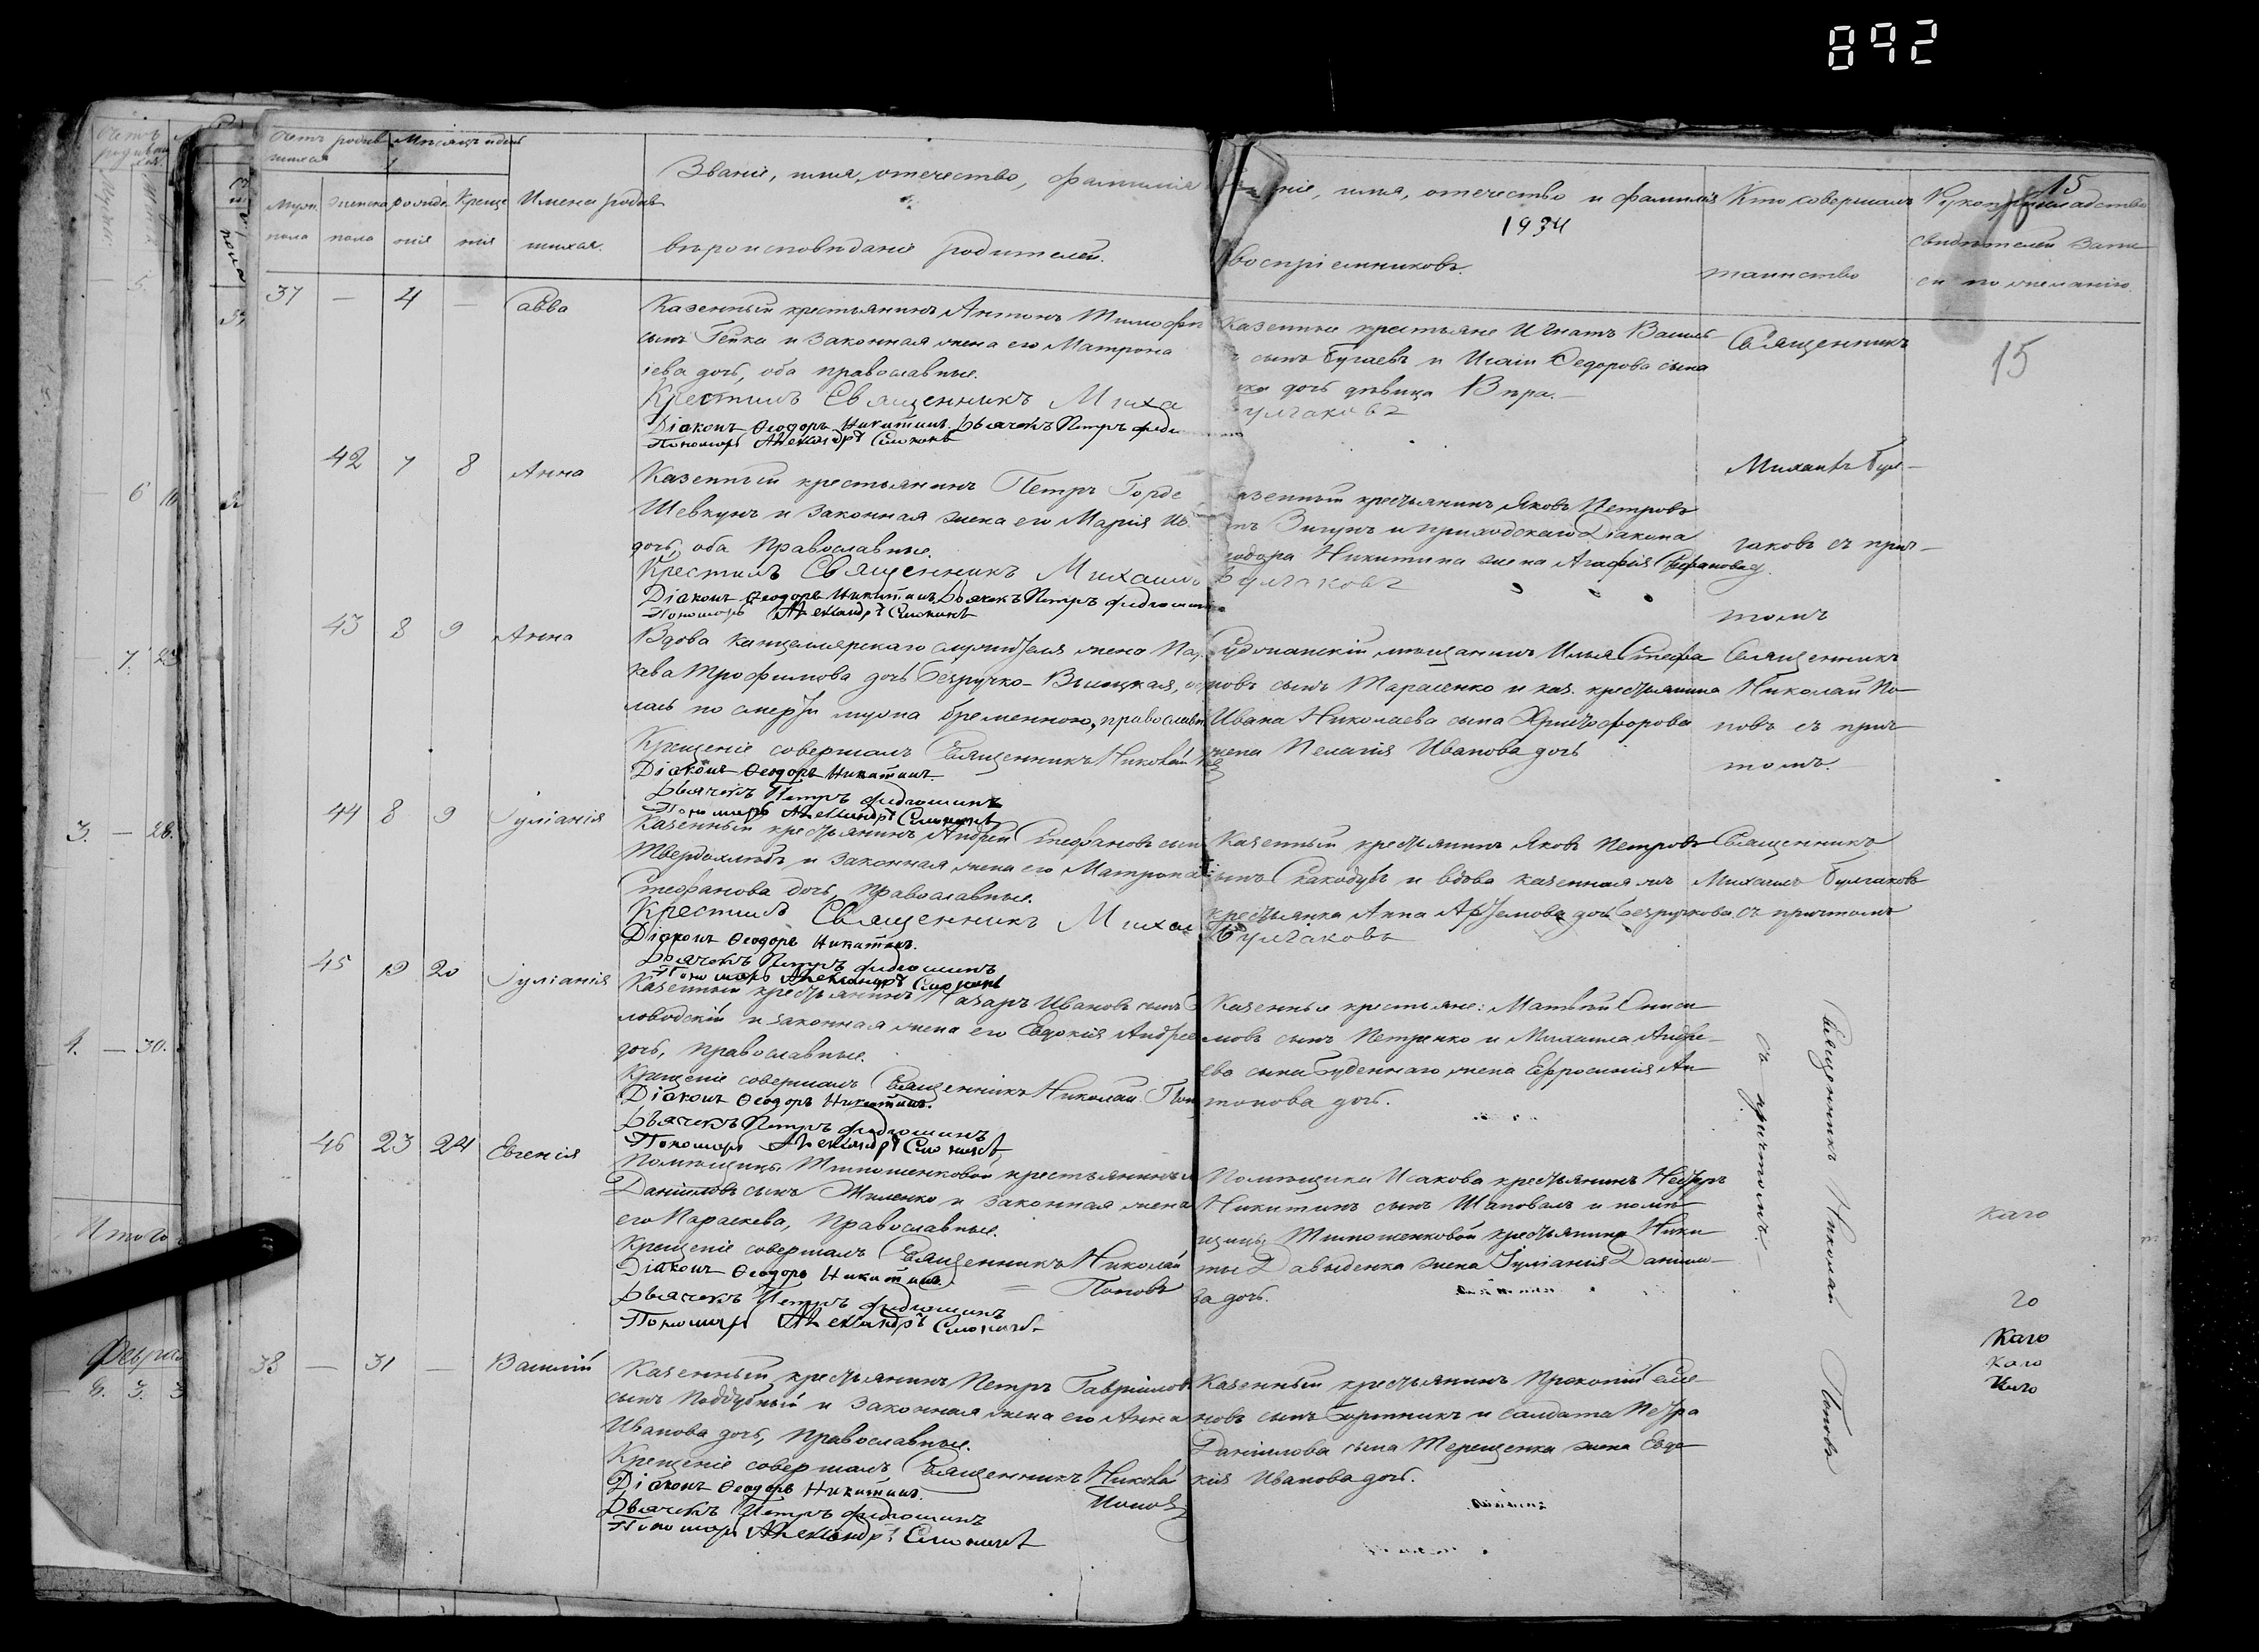 892
Счетъ родив
шихся
Мѣсяцъ и день
Муж. пола
Женска пола
рожде
нія
Креще
нія
Имена родив
шихся.
Званіе, имя, отечество, фамилія
вѣроисповѣданіе родителей.
ніе, имя, отечество и фамилія
1934
воспріемниковъ.
Кто совершалъ
таинство
15
Рукоприкладство
свидѣтелей запи
си по желанію.
37 — 4 — Савва
Казенный крестьянинъ Антонъ Тимофѣ
сынъ Гейка и законная жена его Матрона
іева дочь, оба православные.
Крестилъ Священникъ Миха
Діаконъ Ѳеодоръ Никитинъ. Дьячекъ Петръ
Пономарь Александръ
Казенные крестьяне Игнатъ Василь
сынъ Бугаевъ и Исаіи Ѳедорова сына
дочь дѣвица
Булгаковъ
Священникъ
15
42 7 8 Анна
Казенный крестьянинъ Петръ Горде
Шевкунъ и законная жена его Марія Ив
дочь, оба Православные.
Крестилъ Священникъ Михаилъ
Діаконъ Ѳеодоръ Никитинъ. Дьячекъ Петръ
Пономарь Александръ
казенный крестьянинъ Яковъ Петровъ
и приходскаго Діакона
Ѳеодора Никитина жена Агафія Стефанова д.
Булгаковъ
Михаилъ Бул-
гаковъ съ прич-
томъ
43 8 9 Анна
Вдова канцелярскаго служителя жена Па
кева Трофимова дочь Безручко-Высоцкая, ос
лась по смерти мужа бременною, православн
Крещеніе совершалъ Священникъ Николай
Діаконъ Ѳеодоръ Никитинъ.
Дьячекъ Петръ
Пономарь Александръ
мѣщанинъ Илья Стефа
новъ сынъ Тарасенко и каз. крестьянина
Ивана Николаева сына Христофорова
жена Пелагія Иванова дочь
Священникъ
Николай По-
повъ съ прич-
томъ.
44 8 9 Іуліанія
Казенный крестьянинъ Андрей Стефановъ сын
Твердохлѣбъ и законная жена его Матрона
Стефанова дочь, Православные.
Крестилъ Священникъ Михаи
Діаконъ Ѳеодоръ Никитинъ.
Дьячекъ Петръ
Пономарь Александръ
Казенный крестьянинъ Яковъ Петровъ
сынъ Скакодубъ и вдова казенная
крестьянка Анна Артемова дочь Безручкова
Булгаковъ
Священникъ
Михаилъ Булгаковъ
съ причтомъ
45 19 20 Іуліанія
Казенный крестьянинъ Назаръ Ивановъ сынъ
ловодскій и законная жена его Евдокія Андрее
дочь, Православные.
Крещеніе совершалъ Священникъ Николай Поп
Діаконъ Ѳеодоръ Никитинъ.
Дьячекъ Петръ
Пономарь Александръ
Казенные крестьяне: Матвѣй Ониси
мовъ сынъ Петренко и Михаила Андре-
ева сына Буденнаго жена Ефросинія Ан
тонова дочь.
Священникъ Николай Поповъ
съ причтомъ.
46 23 24 Евгенія
Помѣщицы Тимошенковой крестьянинъ
Даніиловъ сынъ Жиленко и законная жена
его Параскева, Православные.
Крещеніе совершалъ Священникъ Николай
Поповъ
Діаконъ Ѳеодоръ Никитинъ.
Дьячекъ Петръ
Пономарь Александръ
Помѣщика Исакова крестьянинъ
Никитинъ сынъ Шаповалъ и помѣ
щицы Тимошенковой крестьянина Ники
ты Давыденка жена Іуліанія Данило-
ва дочь.
38 — 31 — Василій
Казенный крестьянинъ Петръ Гавріиловъ
сынъ Поддубный и законная жена его Анна
Иванова дочь, Православные.
Крещеніе совершалъ Священникъ Николай
Поповъ
Діаконъ Ѳеодоръ Никитинъ.
Дьячекъ Петръ
Пономарь Александръ
Казенный крестьянинъ Прокопій Семе-
новъ сынъ и солдата Петра
Даніилова сына Терещенка жена Евдо
кія Иванова дочь.